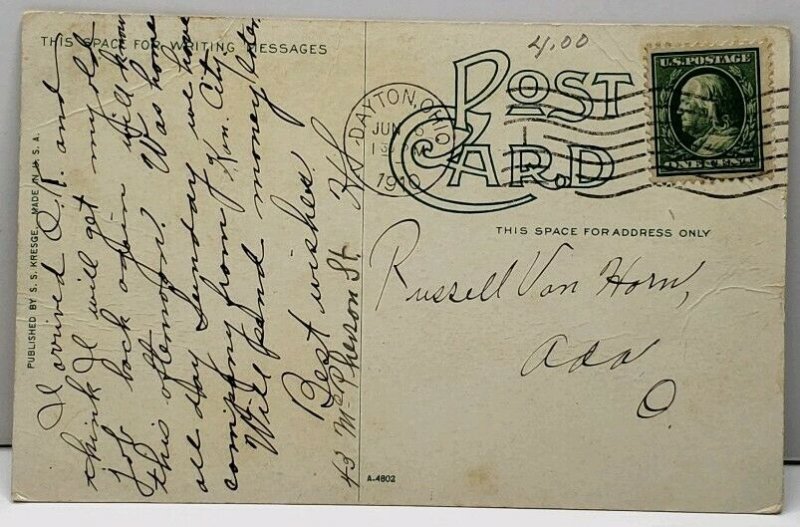 THIS SPACE FOR WRITING MESSAGES
4.00
POST
CARD
U.S. POSTAGE
ONE CENT
DAYTON, OHIO
JUN
1910
THIS SPACE FOR ADDRESS ONLY
Russell Van Horn,
Ada
O.
I arrived O.K. and
think I will get my old
job back again will know
this afternoon. Was home
all day Sunday we have
company from Kan. City.
Will send money later
Best wishes
43 McPherson St.
PUBLISHED BY S. S. KRESGE. MADE IN U.S.A.
A-4802